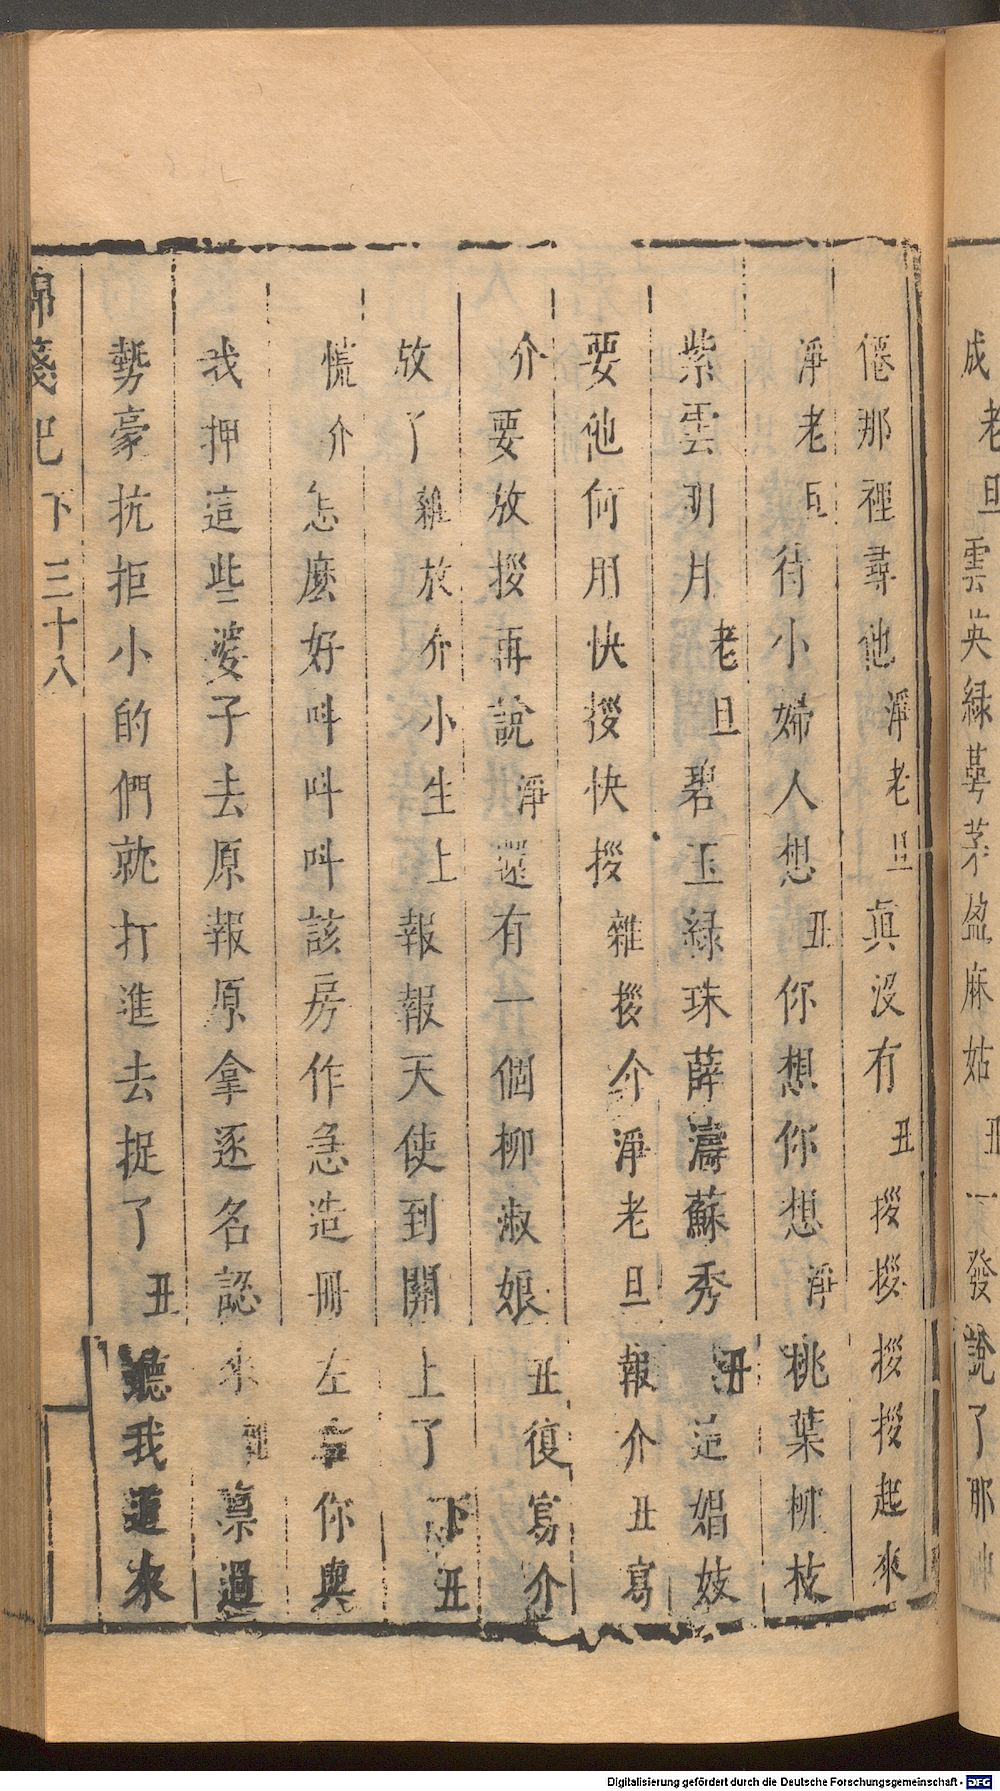 成老旦雲英綠萼茅盈麻姑丑一發說了那
僊那裡尋他淨老旦眞沒有丑拶拶拶拶起來
淨老旦待小婦人想丑你想你想淨桃葉柳枝
紫雲明月老旦碧玉綠珠薛濤蘇秀丑這娼妓
要他何用快拶快拶雜拶介淨老旦報介丑寫
介要放拶再說淨還有一個柳淑娘丑復寫介
放了雜放介小生上報報天使到關上了下丑
慌介怎麽好叫叫叫該房作急造冊左右你與
我押這些婆子去原報原拿逐名認來雜稟過
勢豪抗拒小的們就打進去捉了丑聽我道來
錦箋記下三十八
Digitalisierung gefördert durch die Deutsche Forschungsgemeinschaft - DFG